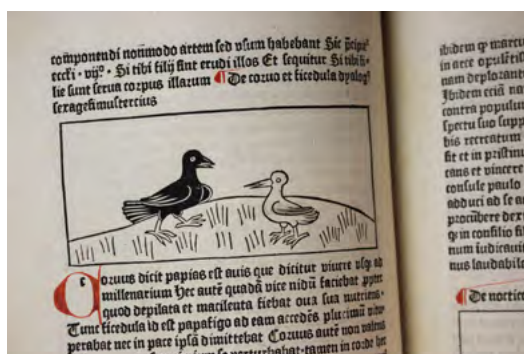 componendi nõmodo artem sed vsum habebant Sic
eccɫi · vijº · Si tibi filij sint erudi illos Et sequitur Si tibi fi⸗
lie sunt serua corpus illarum De coruo et ficedula dyalogꝰ
sexagesimustercius
Coruus dicit papias est auis que dicitur viuere vsqꝫ ad
millenarium Hec autẽ quadã vice nidũ faciebat
quod depilata et macilenta fiebat oua sua nutriens·
Tunc ficedula id est papafigo ad eam accedẽs plurimũ
perabat nec in pace ipsã dimittebat Coruus autẽ non valens
tamen in corde
ibidem qꝫ
in arce
nam deploran
Ibidem eciã na
contra populũ
spectu suo supp
bis recreatum
fit et in pristinu
cans et vincere
consule paulo
abduci ad se
procũbere dex
qꝫ in consilio
num iudicaui
nus laudabile
De